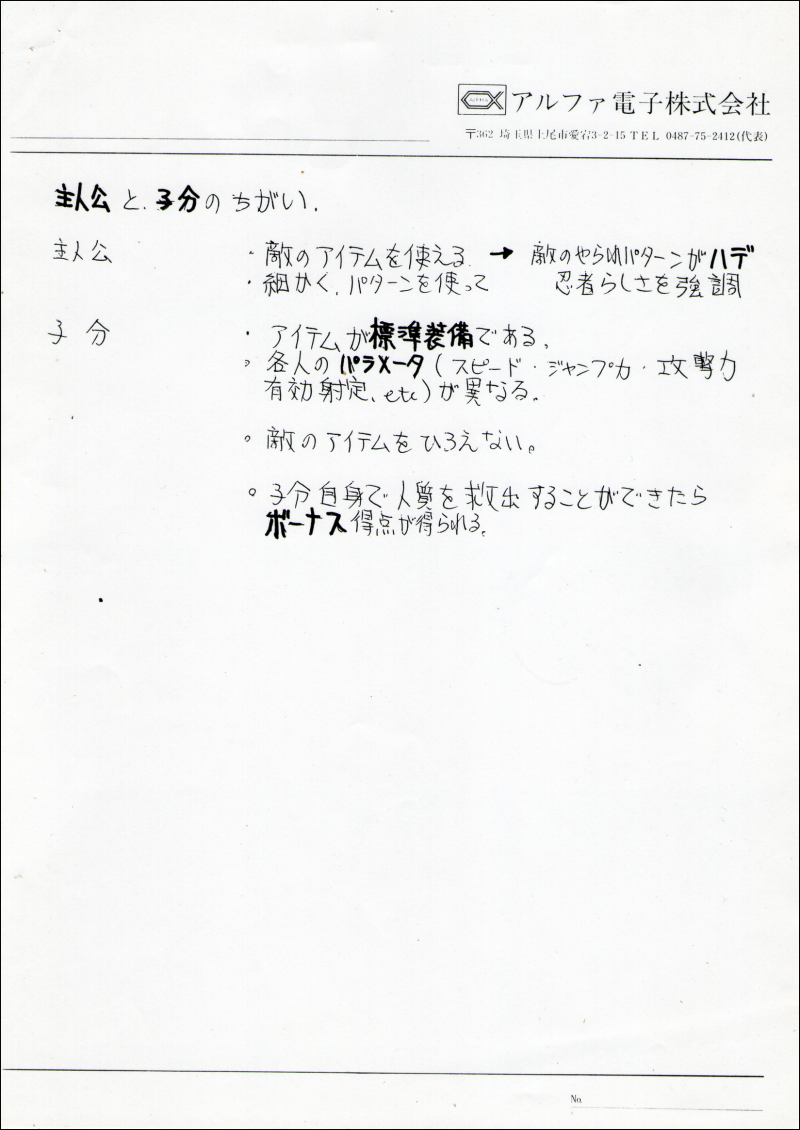 ALPHA
アルファ電子株式会社
〒362 埼玉県上尾市愛宕3-2-15 TEL 0487-75-2412(代表)
主人公と、子分のちがい.
主人公 ・敵のアイテムを使える. → 敵のやられパターンがハデ
・細かく、パターンを使って 忍者らしさを強調
子分 ・アイテムが標準装備である。
。各人のパラメータ(スピード・ジャンプ力・攻撃力
有効射定、etc)が異なる。
。敵のアイテムをひろえない。
。子分自身で人質を救出することができたら
ボーナス得点が得られる。
No.